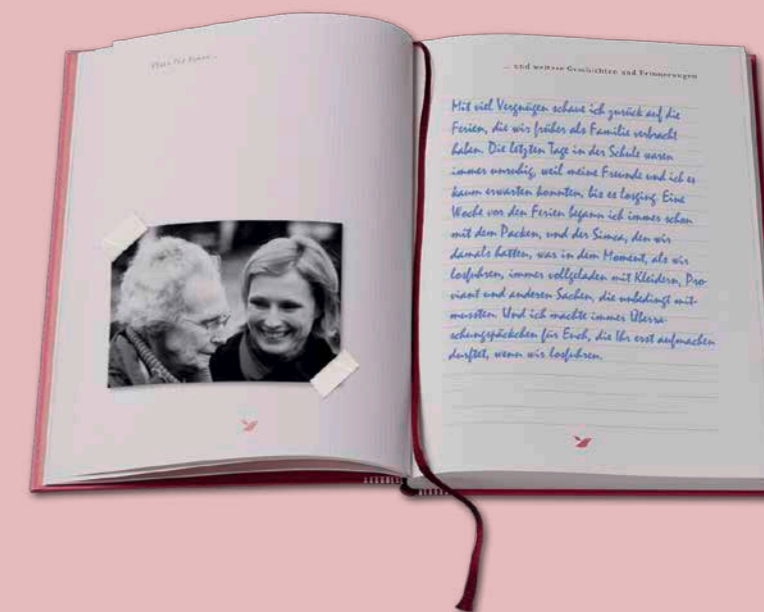 ... und weitere Geschichten und Erinnerungen
Mit viel Vergnügen schaue ich zurück auf die
Ferien, die wir früher als Familie verbracht
haben. Die letzten Tage in der Schule waren
immer unruhig, weil meine Freunde und ich es
kaum erwarten konnten, bis es losging. Eine
Woche vor den Ferien begann ich immer schon
mit dem Packen, und der Simca, den wir
damals hatten, war in dem Moment, als wir
losfuhren, immer vollgeladen mit Kleidern, Pro-
viant und anderen Sachen, die unbedingt mit-
mussten. Und ich machte immer Überra-
schungspäckchen für Euch, die Ihr erst aufmachen
durftet, wenn wir losfuhren.